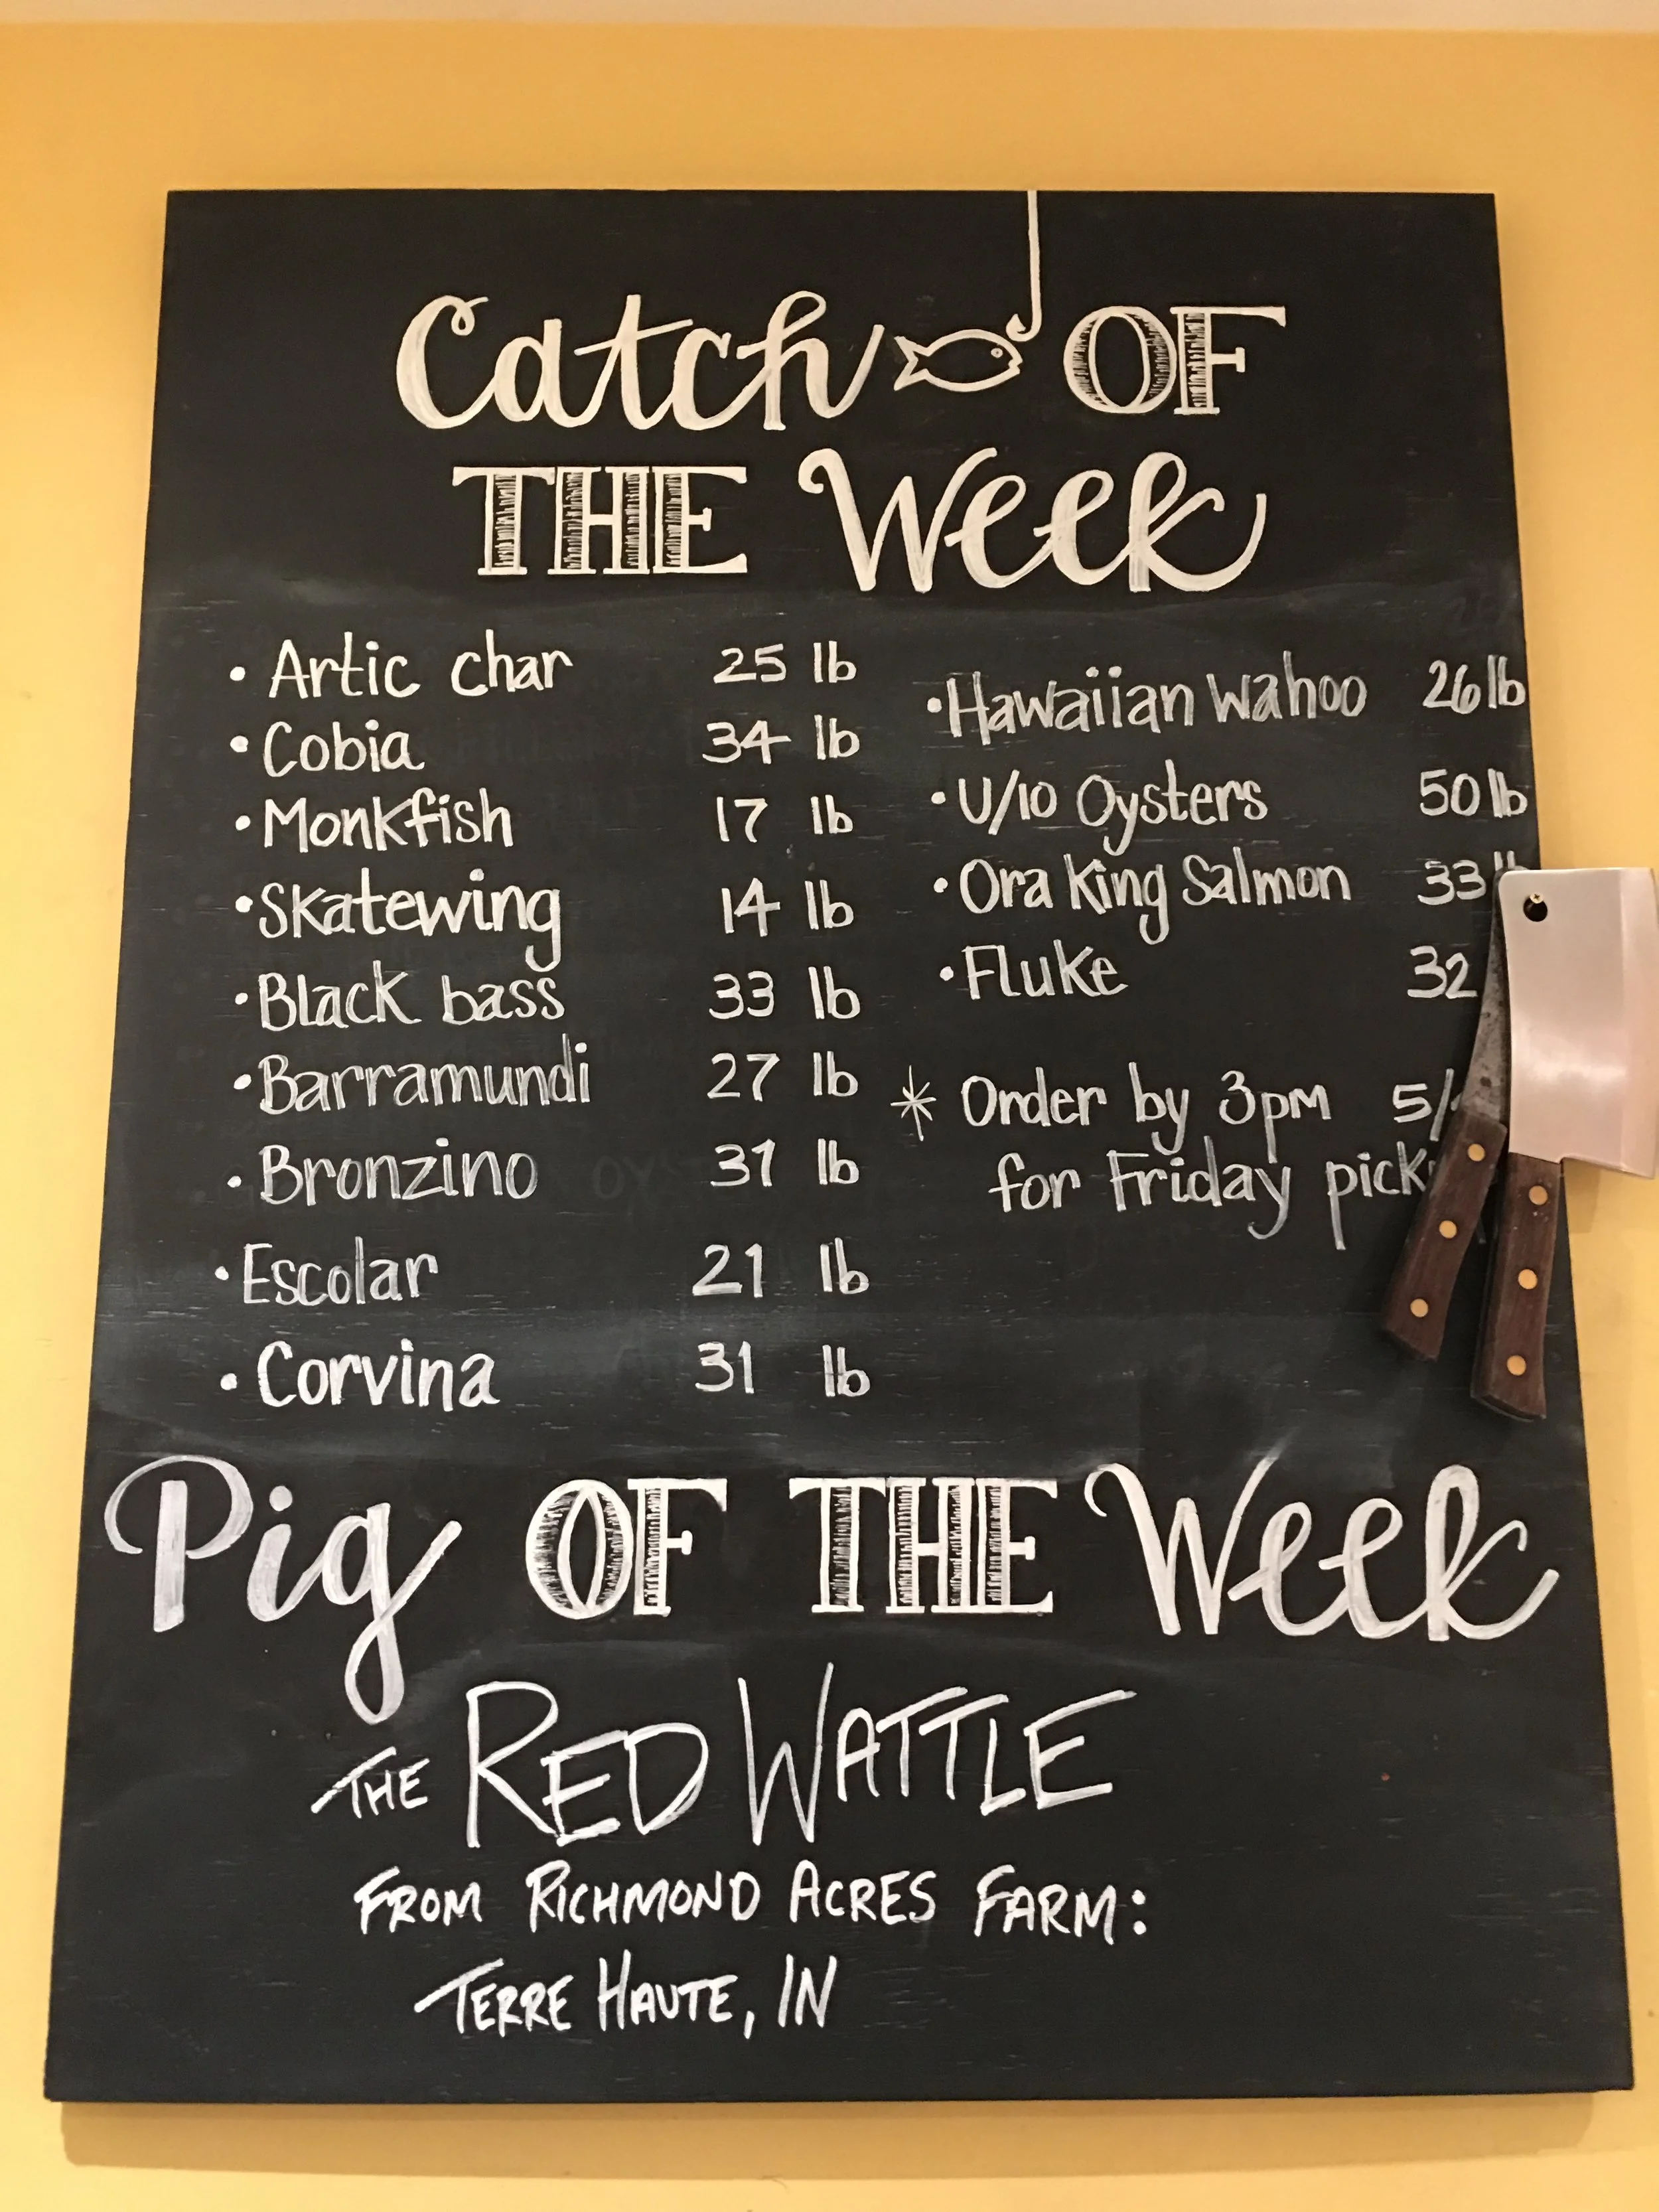 Catch OF
THE Week
• Artic char 25 lb
• Cobia 34 lb
• Monkfish 17 lb
• Skatewing 14 lb
• Black bass 33 lb
• Barramundi 27 lb
• Bronzino 31 lb
• Escolar 21 lb
• Corvina 31 lb
• Hawaiian Wahoo 26 lb
• U/10 Oysters 50 lb
• Ora King Salmon 33 lb
• Fluke 32
* Order by 3pm
for Friday
Pig OF THE Week
THE RED WATTLE
FROM RICHMOND ACRES FARM:
TERRE HAUTE, IN